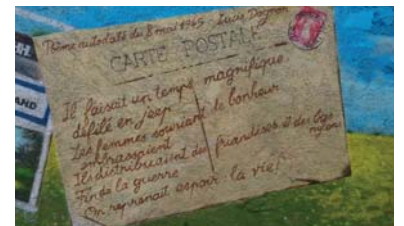 Thème autodaté du 8 mai 1945 Lucie Dognon
CARTE POSTALE
Il faisait un temps magnifique
défilé en jeep !
Les femmes souriant de bonheur
embrassaient
Ils distribuaient du friandises et des bas
nylons
Fin de la guerre
On reprenait espoir la vie !
AND